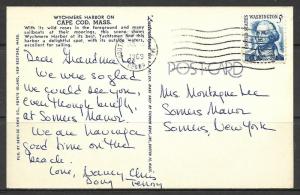 WYCHMERE HARBOR ON
CAPE COD, MASS.
With its wild roses in the foreground and many
sailboats at their moorings, this scene shows
Wychmere Harbor at its best. Yachtsmen find this
harbor a delightful spot, with its outside waters
excellent for sailing.
WASHINGTON
POSTCARD
Dear Grandma,
We were so glad
we could see you,
even though briefly
at Somers Manor.
We are having a
good time on the
beach.
Love,
Chris
Mrs Montague Lee
Somers Manor
Somers, New York